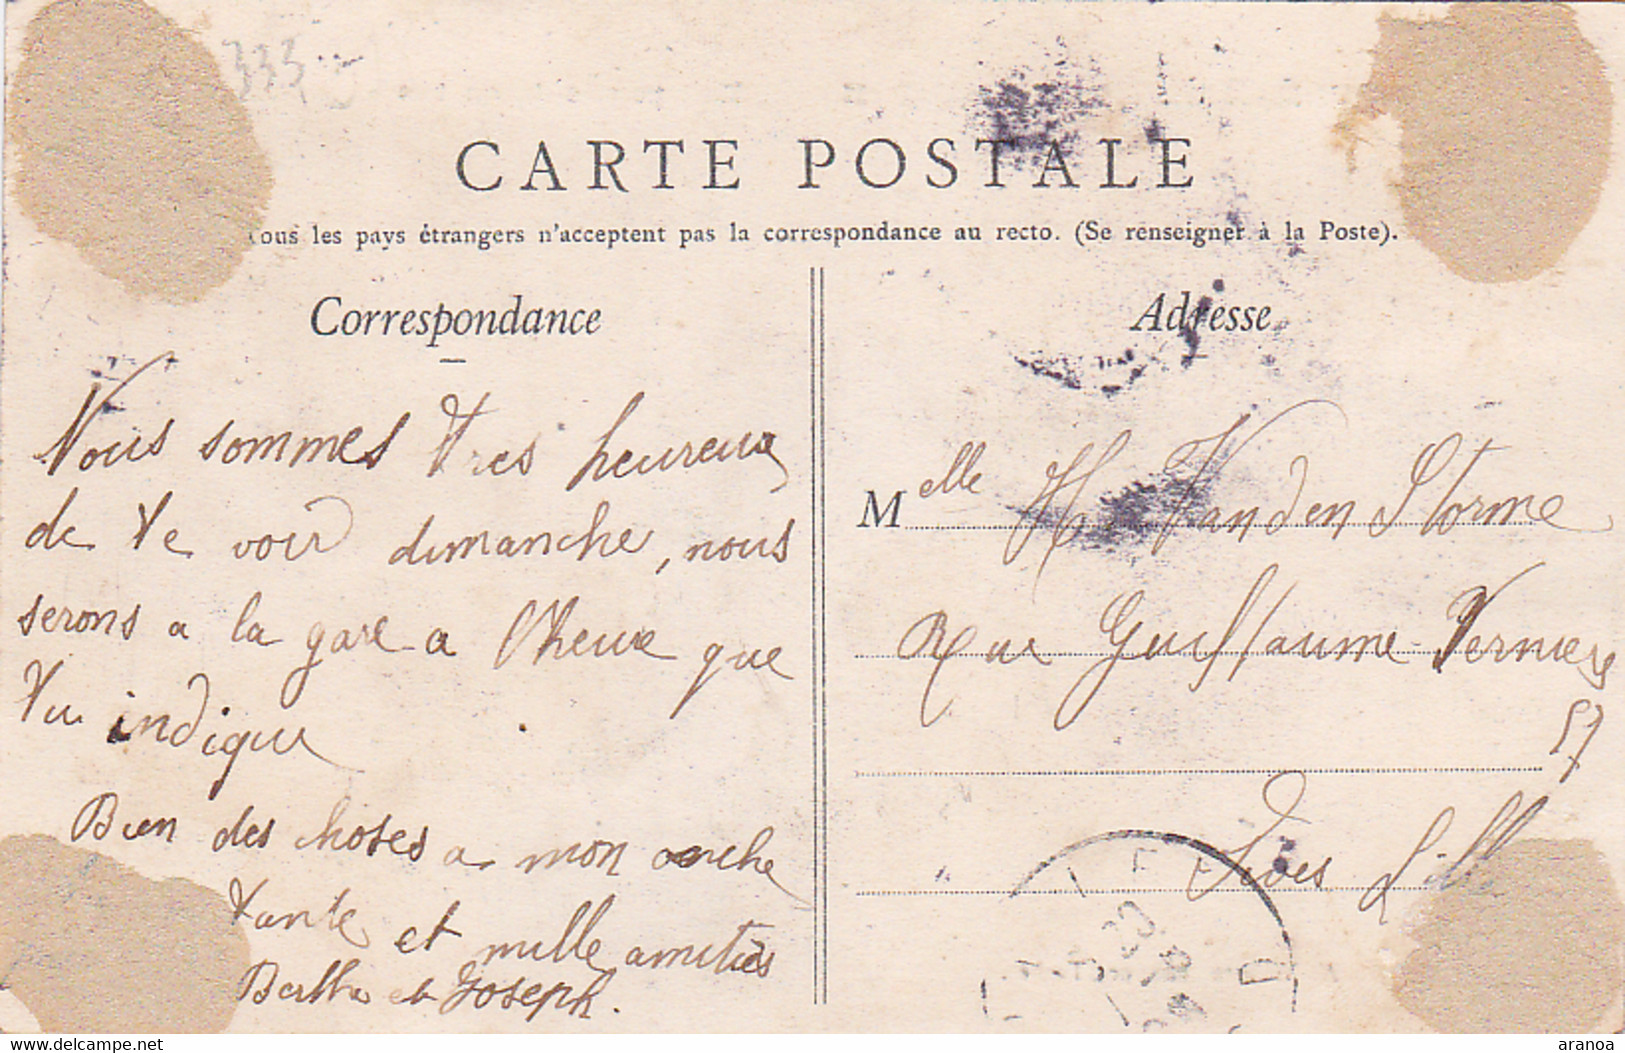 333
CARTE POSTALE
tous les pays étrangers n'acceptent pas la correspondance au recto. (Se renseigner à la Poste).
Correspondance
Nous sommes tres heureux
de te voir dimanche, nous
serons a la gare a l'heure que
tu indique
Bien des choses a mon oncke
tante et mille amitiés
Berthe et Joseph.
Adresse
Melle H. Vanden Storme
Rue Guillaume Verniers
57
Fives Lille
delcampe.net
aranoa